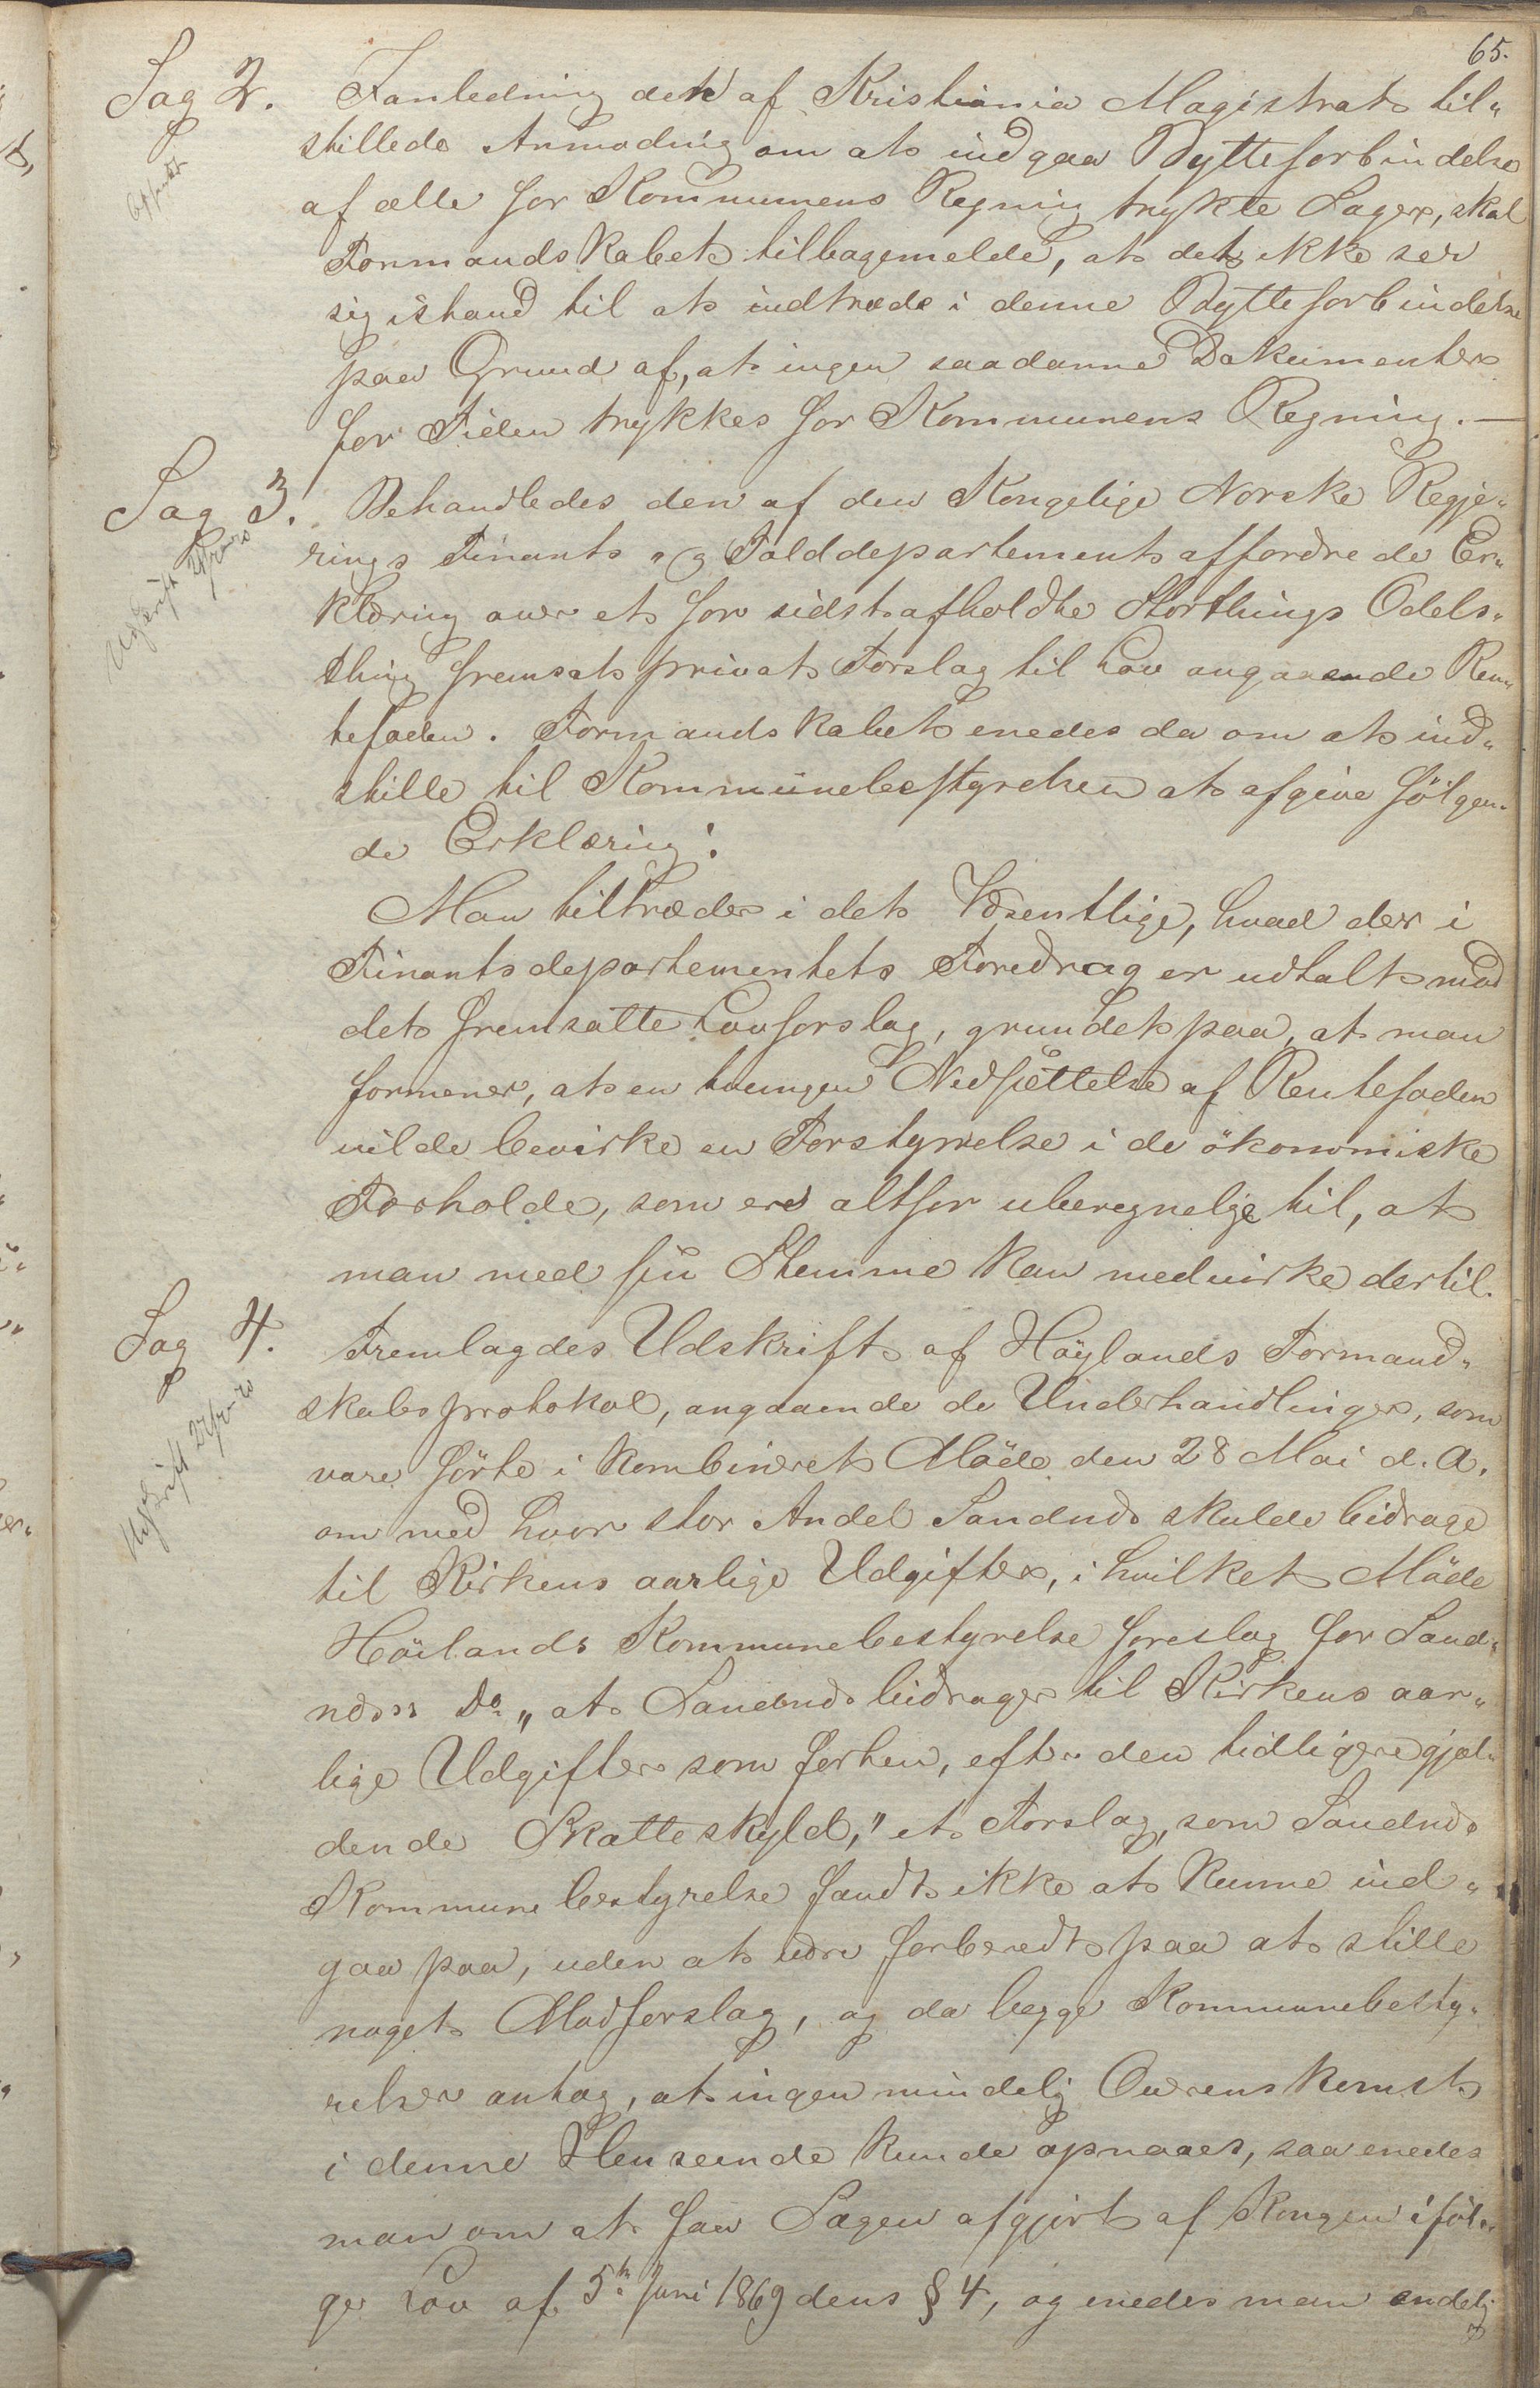 65.
Sag 2. I anledning den af Kristiania Magistrat til-
stillede Anmodning om at indgaa Bytteforbindelse
af alle for Kommunens Regning trykte Sager, skal
Formandskabet tilbagemelde, at det ikke ser
sig istand til at indtræde i denne Bytteforbindelse
paa Grund af, at ingen saadanne Dokumenter
for Tiden trykkes for Kommunens Regning.—
Sag 3. Behandledes den af den Kongelige Norske Regje-
rings Finants- og Tolddepartement affordrede Er-
klæring over et for sidst afholdte Storthings Odels-
thing fremsat privat Forslag til Lov angaaende Ren-
tefoden. Formandskabet enedes da om at ind-
stille til Kommünebestyrelsen at afgive følgen-
de Erklæring:
Man tiltræder i det Væsentlige, hvad der i
Finantsdepartementets Foredrag er udtalt mod
det fremsatte Lovforslag, grundet paa, at man
formener, at en tvungen Nedsættelse af Rentefoden
vilde bevirke en Forstyrrelse i de økonomiske
Forholde, som er altfor uberegnelige til, at
man med sin Stemme kan medvirke dertil.
Sag 4. Fremlagdes Udskrift af Høylands Formand-
skabsprotokol, angaaende de Underhandlinger, som
vare førte i kombineret Møde den 28 Mai d. A.
om med hvor stor Andel Sandnæs skulde bidrage
til Kirkens aarlige Udgifter, i hvilket Møde
Høilands Kommunebestyrelse foreslog for Sand-
næs's Do. „at Sandnæs bidrager til Kirkens aar-
lige Udgifter som forhen, efter den tidligere gjæl-
dende Skatteskyld," et Forslag, som Sandnæs
Kommunebestyrelse fandt ikke at kunne ind-
gaa paa, uden at være forberedt paa at stille
noget Modforslag, og da begge Kommunebesty-
relser antog, at ingen mindelig Overenskomst
i denne Henseende kunde opnaaes, saa enedes
man om at faa Sagen afgjort af Kongen iføl-
ge Lov af 5te Juni 1869 dens § 4, og enedes man endelig